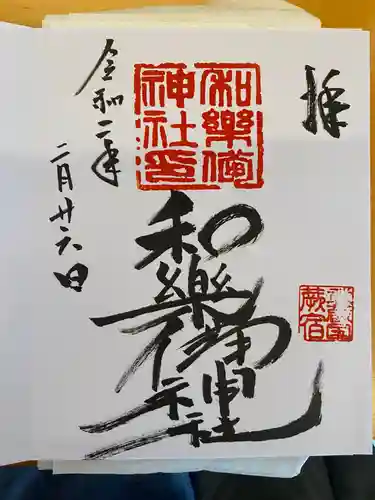 拝
蕨宿
和樂備
神社印
和樂備神社
令和二年
二月廿六日